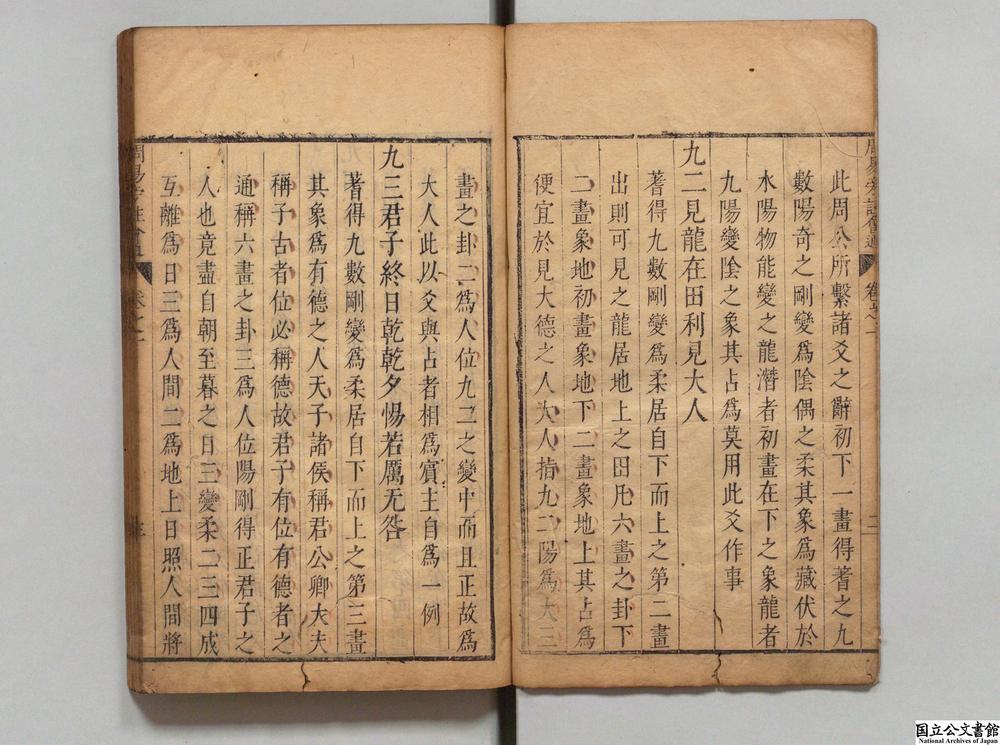 此周公所繫諸爻之辭初下一畫得蓍之九
數陽奇之剛變爲陰偶之柔其象爲藏伏於
水陽物能變之龍潛者初畫在下之象龍者
九陽變陰之象其占爲莫用此爻作事
九二見龍在田利見大人
蓍得九數剛變爲柔居自下而上之第二畫
出則可見之龍居地上之田凡六畫之卦下
二畫象地初畫象地下二畫象地上其占爲
便宜於見大德之人大人指九二陽爲大三
畫之卦二爲人位九二之變中而且正故爲
大人此以爻與占者相爲賓主自爲一例
九三君子終日乾乾夕惕若厲无咎
蓍得九數剛變爲柔居自下而上之第三畫
其象爲有德之人天子諸侯稱君公卿大夫
稱子古者位必稱德故君子有位有德者之
通稱六畫之卦三爲人位陽剛得正君子之
人也竟盡自朝至暮之日三變柔二三四成
互離爲日三爲人間二爲地上日照人間將
国立公文書館
National Archives of Japan